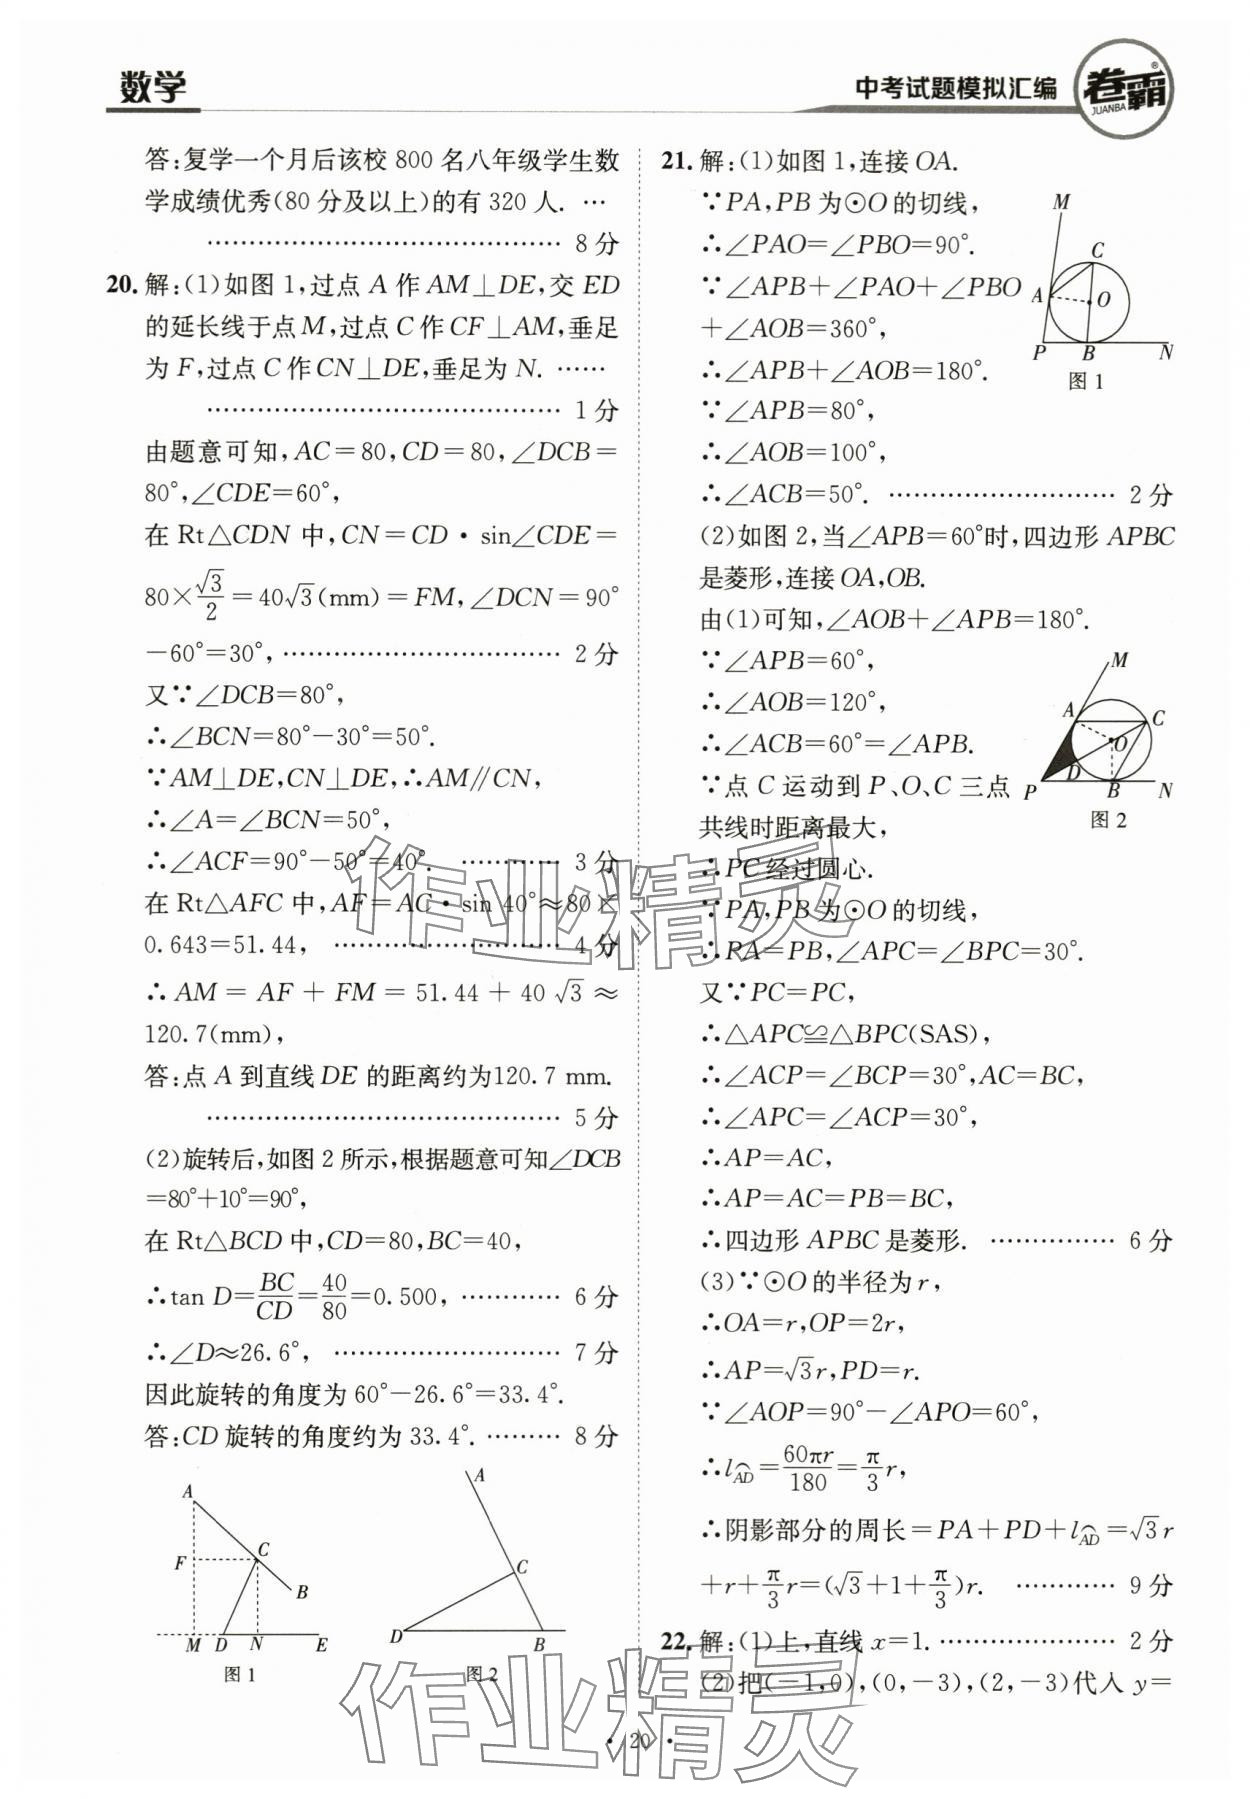 数学
中考试题模拟汇编
卷霸®
JUANBA
答:复学一个月后该校 800 名八年级学生数
学成绩优秀(80 分及以上)的有 320 人. …
………………………………………… 8 分
20. 解:(1)如图 1,过点 A 作 AM⊥DE,交 ED
的延长线于点 M,过点 C 作 CF⊥AM,垂足
为 F,过点 C 作 CN⊥DE,垂足为 N. ……
………………………………………… 1 分
由题意可知,AC=80,CD=80,∠DCB=
80°,∠CDE=60°,
在 Rt△CDN 中,CN=CD·sin∠CDE=
80×√3/2=40√3(mm)=FM,∠DCN=90°
−60°=30°,……………………………… 2 分
又∵∠DCB=80°,
∴∠BCN=80°−30°=50°.
∵AM⊥DE,CN⊥DE,∴AM∥CN,
∴∠A=∠BCN=50°,
∴∠ACF=90°−50°=40°. ………… 3 分
在 Rt△AFC 中,AF=AC·sin 40°≈80×
0.643=51.44, ………………………… 4 分
∴AM=AF+FM=51.44+40√3≈
120.7(mm),
答:点 A 到直线 DE 的距离约为120.7 mm.
………………………………………… 5 分
(2)旋转后,如图 2 所示,根据题意可知∠DCB
=80°+10°=90°,
在 Rt△BCD 中,CD=80,BC=40,
∴tan D=BC/CD=40/80=0.500, ………… 6 分
∴∠D≈26.6°, ………………………… 7 分
因此旋转的角度为 60°−26.6°=33.4°.
答:CD 旋转的角度约为 33.4°. ……… 8 分
A
F
C
B
M
D
N
E
图 1
A
C
D
B
图 2
21. 解:(1)如图 1,连接 OA.
∵PA,PB 为⊙O 的切线,
∴∠PAO=∠PBO=90°.
∵∠APB+∠PAO+∠PBO
+∠AOB=360°,
∴∠APB+∠AOB=180°.
∵∠APB=80°,
∴∠AOB=100°,
∴∠ACB=50°. ……………………… 2 分
M
C
A
O
P
B
N
图 1
(2)如图 2,当∠APB=60°时,四边形 APBC
是菱形,连接 OA,OB.
由(1)可知,∠AOB+∠APB=180°.
∵∠APB=60°,
∴∠AOB=120°,
∴∠ACB=60°=∠APB.
∵点 C 运动到 P、O、C 三点
共线时距离最大,
∴PC 经过圆心.
M
A
C
O
D
P
B
N
图 2
∵PA,PB 为⊙O 的切线,
∴PA=PB,∠APC=∠BPC=30°.
又∵PC=PC,
∴△APC≌△BPC(SAS),
∴∠ACP=∠BCP=30°,AC=BC,
∴∠APC=∠ACP=30°,
∴AP=AC,
∴AP=AC=PB=BC,
∴四边形 APBC 是菱形. …………… 6 分
(3)∵⊙O 的半径为 r,
∴OA=r,OP=2r,
∴AP=√3r,PD=r.
∵∠AOP=90°−∠APO=60°,
∴l⌒AD=60πr/180=π/3r,
∴阴影部分的周长=PA+PD+l⌒AD=√3r
+r+π/3r=(√3+1+π/3)r. ………… 9 分
22. 解:(1)上,直线 x=1. ………………… 2 分
(2)把(−1,0),(0,−3),(2,−3)代入 y=
作业精灵
作业精灵
· 20 ·